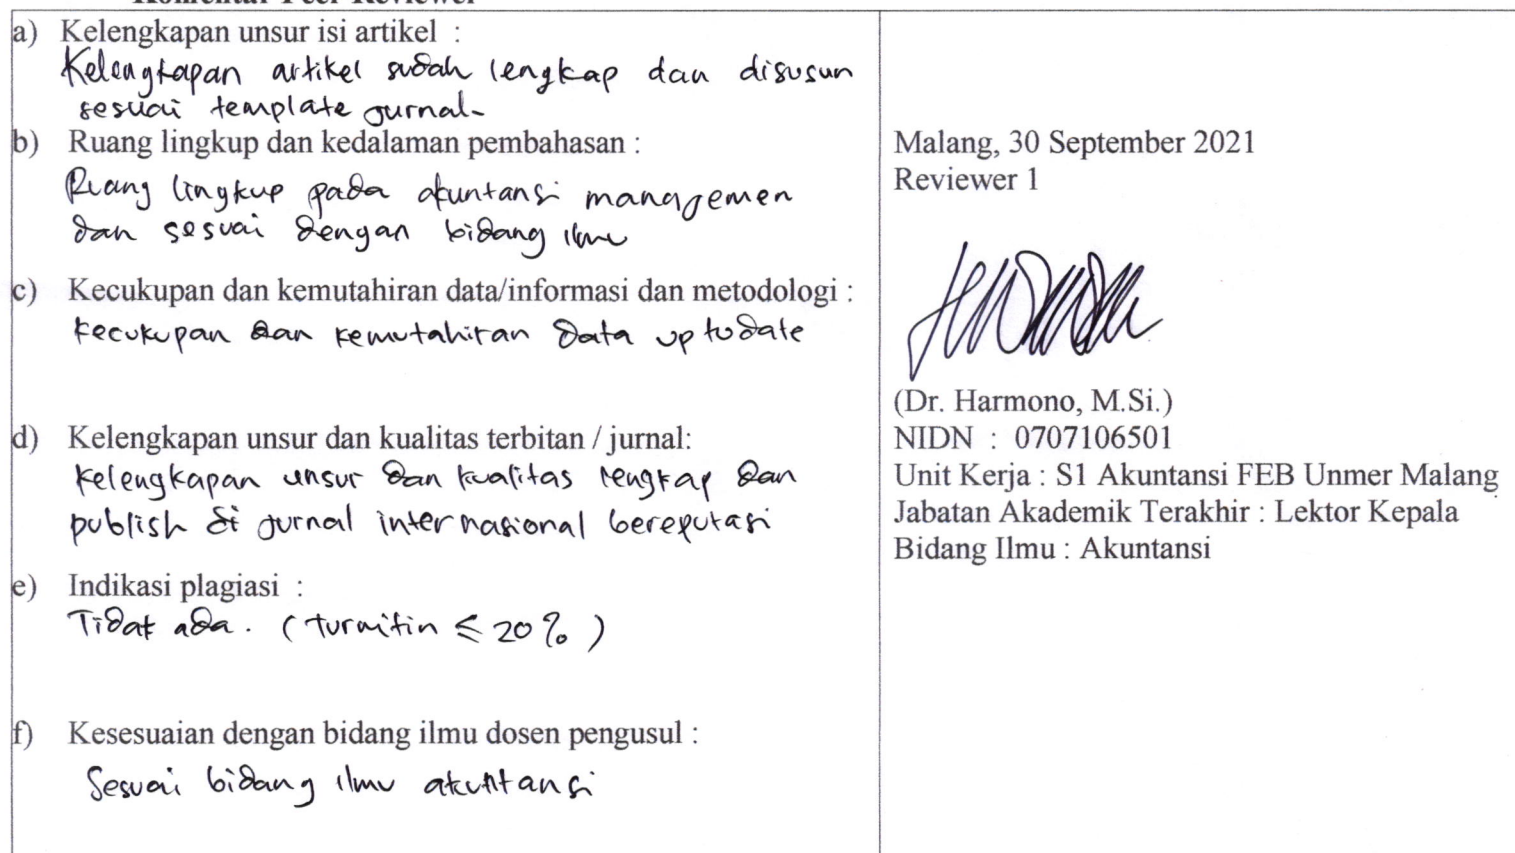 Komentar Peer Reviewer
a) Kelengkapan unsur isi artikel :
Kelengkapan artikel sudah lengkap dan disusun
sesuai template jurnal-
b) Ruang lingkup dan kedalaman pembahasan :
Ruang lingkup pada akuntansi managemen
dan sesuai dengan bidang ilmu
c) Kecukupan dan kemutahiran data/informasi dan metodologi :
Kecukupan dan kemutahiran data uptodate
d) Kelengkapan unsur dan kualitas terbitan / jurnal:
Kelengkapan unsur dan kualitas lengkap dan
publish di jurnal internasional bereputasi
e) Indikasi plagiasi :
Tidak ada. (turnitin ≤ 20%)
f) Kesesuaian dengan bidang ilmu dosen pengusul :
Sesuai bidang ilmu akuntansi
Malang, 30 September 2021
Reviewer 1
(Dr. Harmono, M.Si.)
NIDN : 0707106501
Unit Kerja : S1 Akuntansi FEB Unmer Malang
Jabatan Akademik Terakhir : Lektor Kepala
Bidang Ilmu : Akuntansi